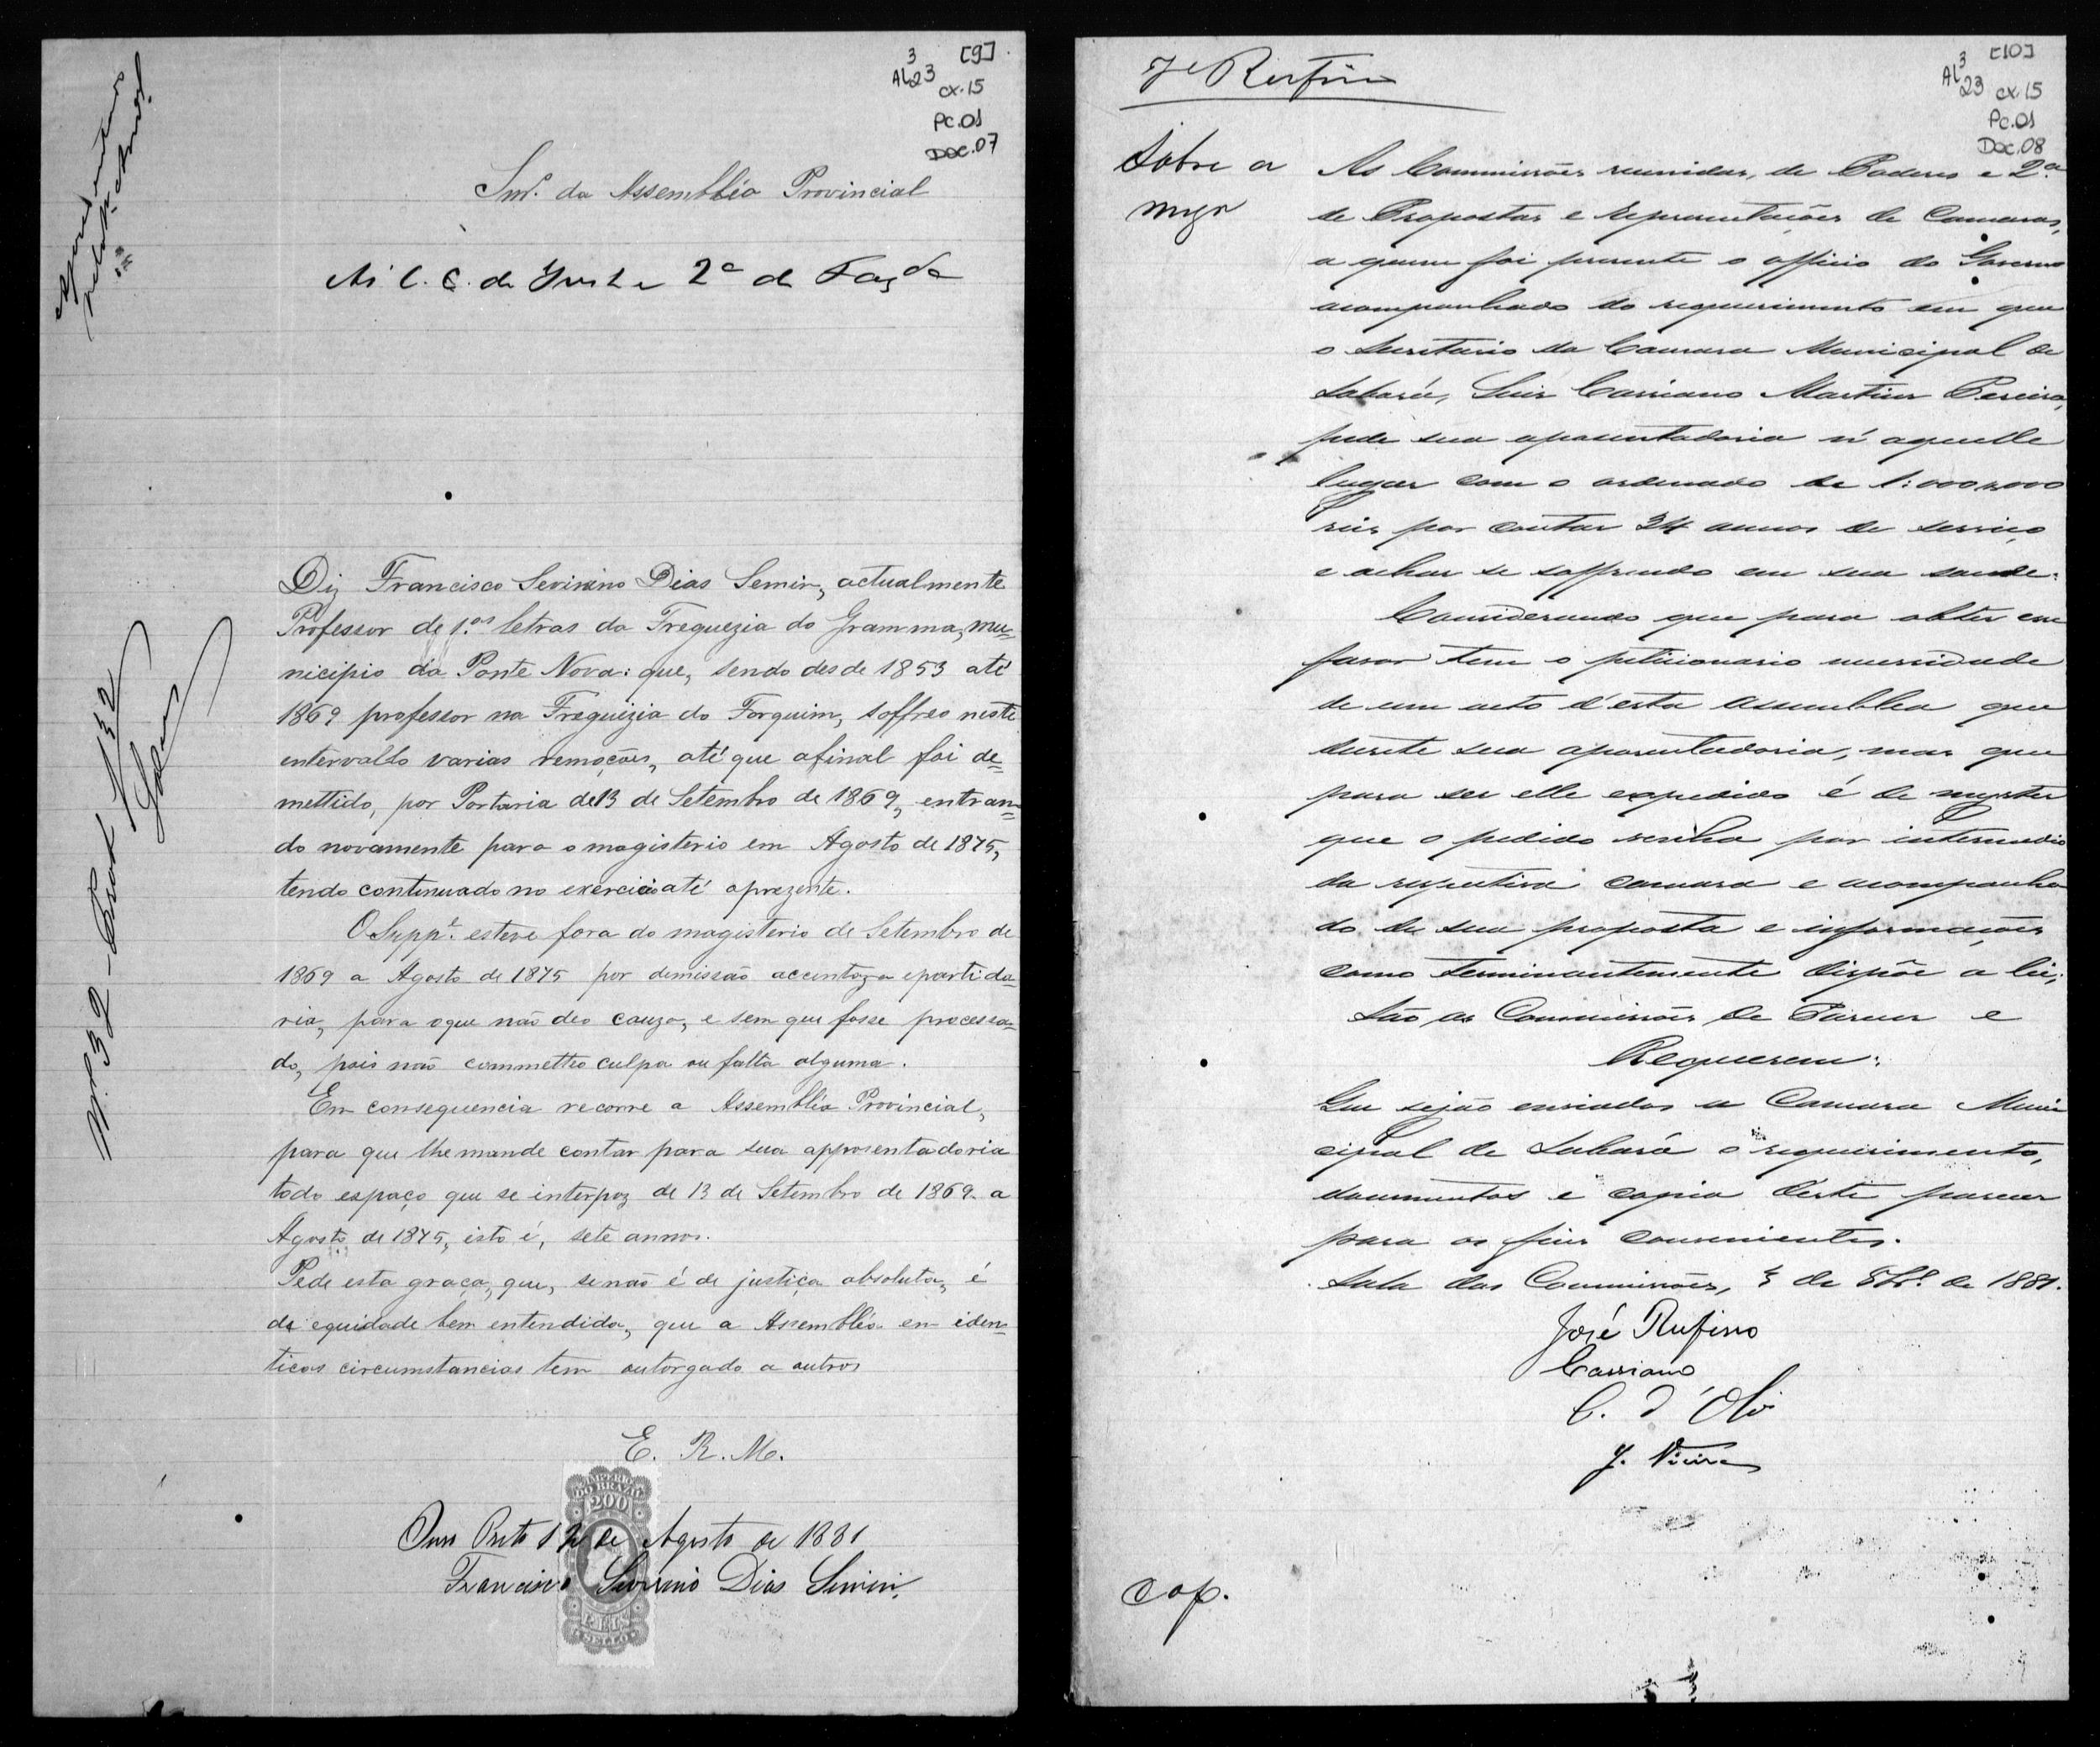 [9]
3
AL23
cx.15
Pc.01
Doc.07
Snr. da Assembléa Provincial
2ª de Fazda
Diz Francisco Severino Dias Semin, actualmente
Professor de 1.as letras da Freguezia do Gramma, mu=
nicipio da Ponte Nova: que, sendo desde 1853 até
1869 professor na Freguizia do Forquim, soffreo neste
entervallo varias remoções, até que afinal foi de=
mettido, por Portaria de 13 de Setembro de 1869, entran=
do novamente para o magisterio em Agosto de 1875,
tendo continuado no exercicio até aprezente.
O Suppe. esteve fora do magisterio de Setembro de
1869 a Agosto de 1875 por demissão accintoza epartida=
ria, para oque não deo cauza, e sem que fosse processa=
do, pois não commetteo culpa ou falta alguma.
Em consequencia recorre a Assembléa Provincial,
para que lhe mande contar para sua apposentadoria
todo espaço que se interpoz de 13 de Setembro de 1869 a
Agosto de 1875, isto é, sete annos.
Pede esta graça, que, senão é de justiça absoluta, é
de equidade bem entendida, que a Assembléa em iden=
ticas circumstancias tem outorgado a outros
E. R. M.
IMPERIO
DO BRAZIL
200
REIS
SELLO
Ouro Preto 12 de Agosto de 1881
Francisco Severino Dias Semin.
N. 32
[10]
3
AL23
cx.15
Pc.01
Doc.08
Je Rufino
Sobre a
mesa
As Commissões reunidas, de Poderes e 2.a
de Propostas e representações de Camaras,
a quem foi presente o officio do Governo
acompanhado do requerimento em que
o Secretario da Camara Municipal de
Sabará, Luis Cassiano Martins Pereira,
pede sua aposentadoria n'aquelle
lugar com o ordenado de 1:000$000
reis por contar 34 annos de serviço
e achar se soffrendo em sua saude.
Considerando que para obter esse
favor tem o peticionario necessidade
de um acto d'esta Assemblea que
decrete sua aposentadoria, mas que
para ser elle expedido é de myster
que o pedido venha por intermedio
da respectiva camara e acompanha
do de sua proposta e informações
como terminantemente dispõe a lei,
São as Commissões de Parecer e
Requerem:
Que sejão enviados a Camara Muni
cipal de Sabará o requerimento,
documentos e copia deste parecer
para os fins convenientes.
Sala das Commissões, 3 de 8bro de 1881.
José Rufino
Cassiano
C. d'Olivª
J. Vieira
Cop.